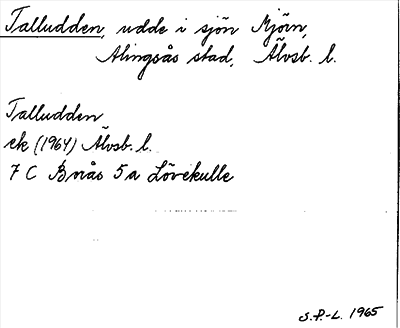 Talludden, udde i sjön Mjörn,
Alingsås stad, Älvsb. l.
Talludden
ek (1964) Älvsb. l.
7 C Bnås 5a Lövekulle
S.P.-L. 1965